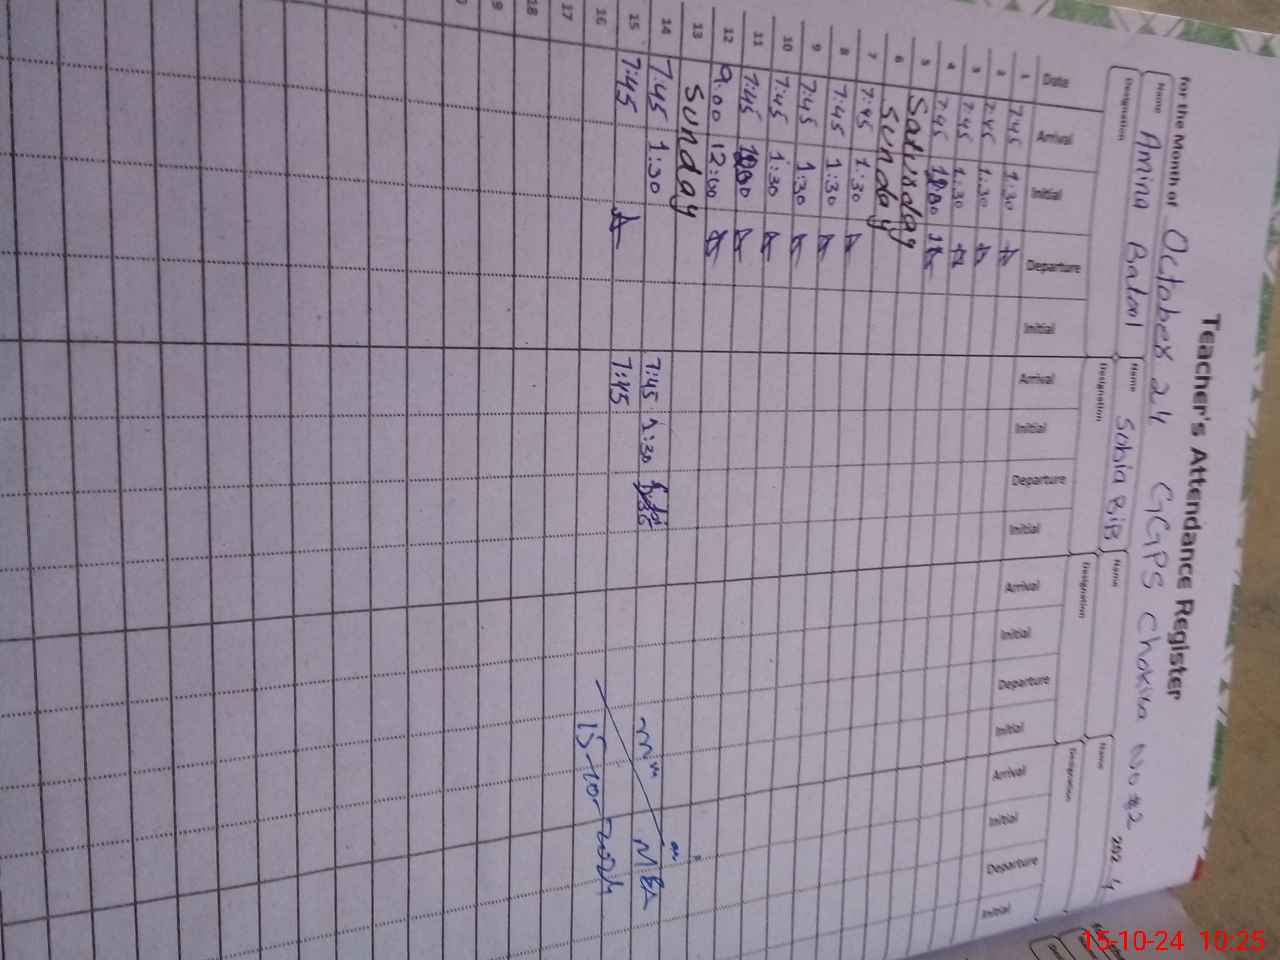 Teacher's Attendance Register
for the Month of October 24 GGPS Chokila No #2 2024
Name Amina Batool Name Sobia BiBi Name Name
Designation Designation Designation Designation
Date Arrival Initial Departure Initial Arrival Initial Departure Initial Arrival Initial Departure Initial Arrival Initial Departure Initial
1 7:45 1:30
2 7:45 1:30
3 7:45 1:30
4 7:45
5 Saturday
6 Sunday
7 7:45 1:30
8 7:45 1:30
9 7:45 1:30
10 7:45 1:30
11 7:45
12 9:00 12:00
13 Sunday
14 7:45 1:30 7:45 1:30
15 7:45 7:45
16 15-10-2024
17
18
15-10-24 10:25